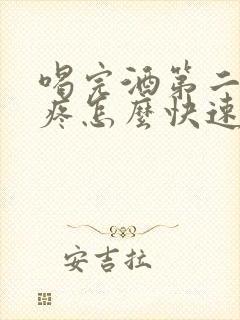 喝完酒第二
疼怎麼快速
安吉拉